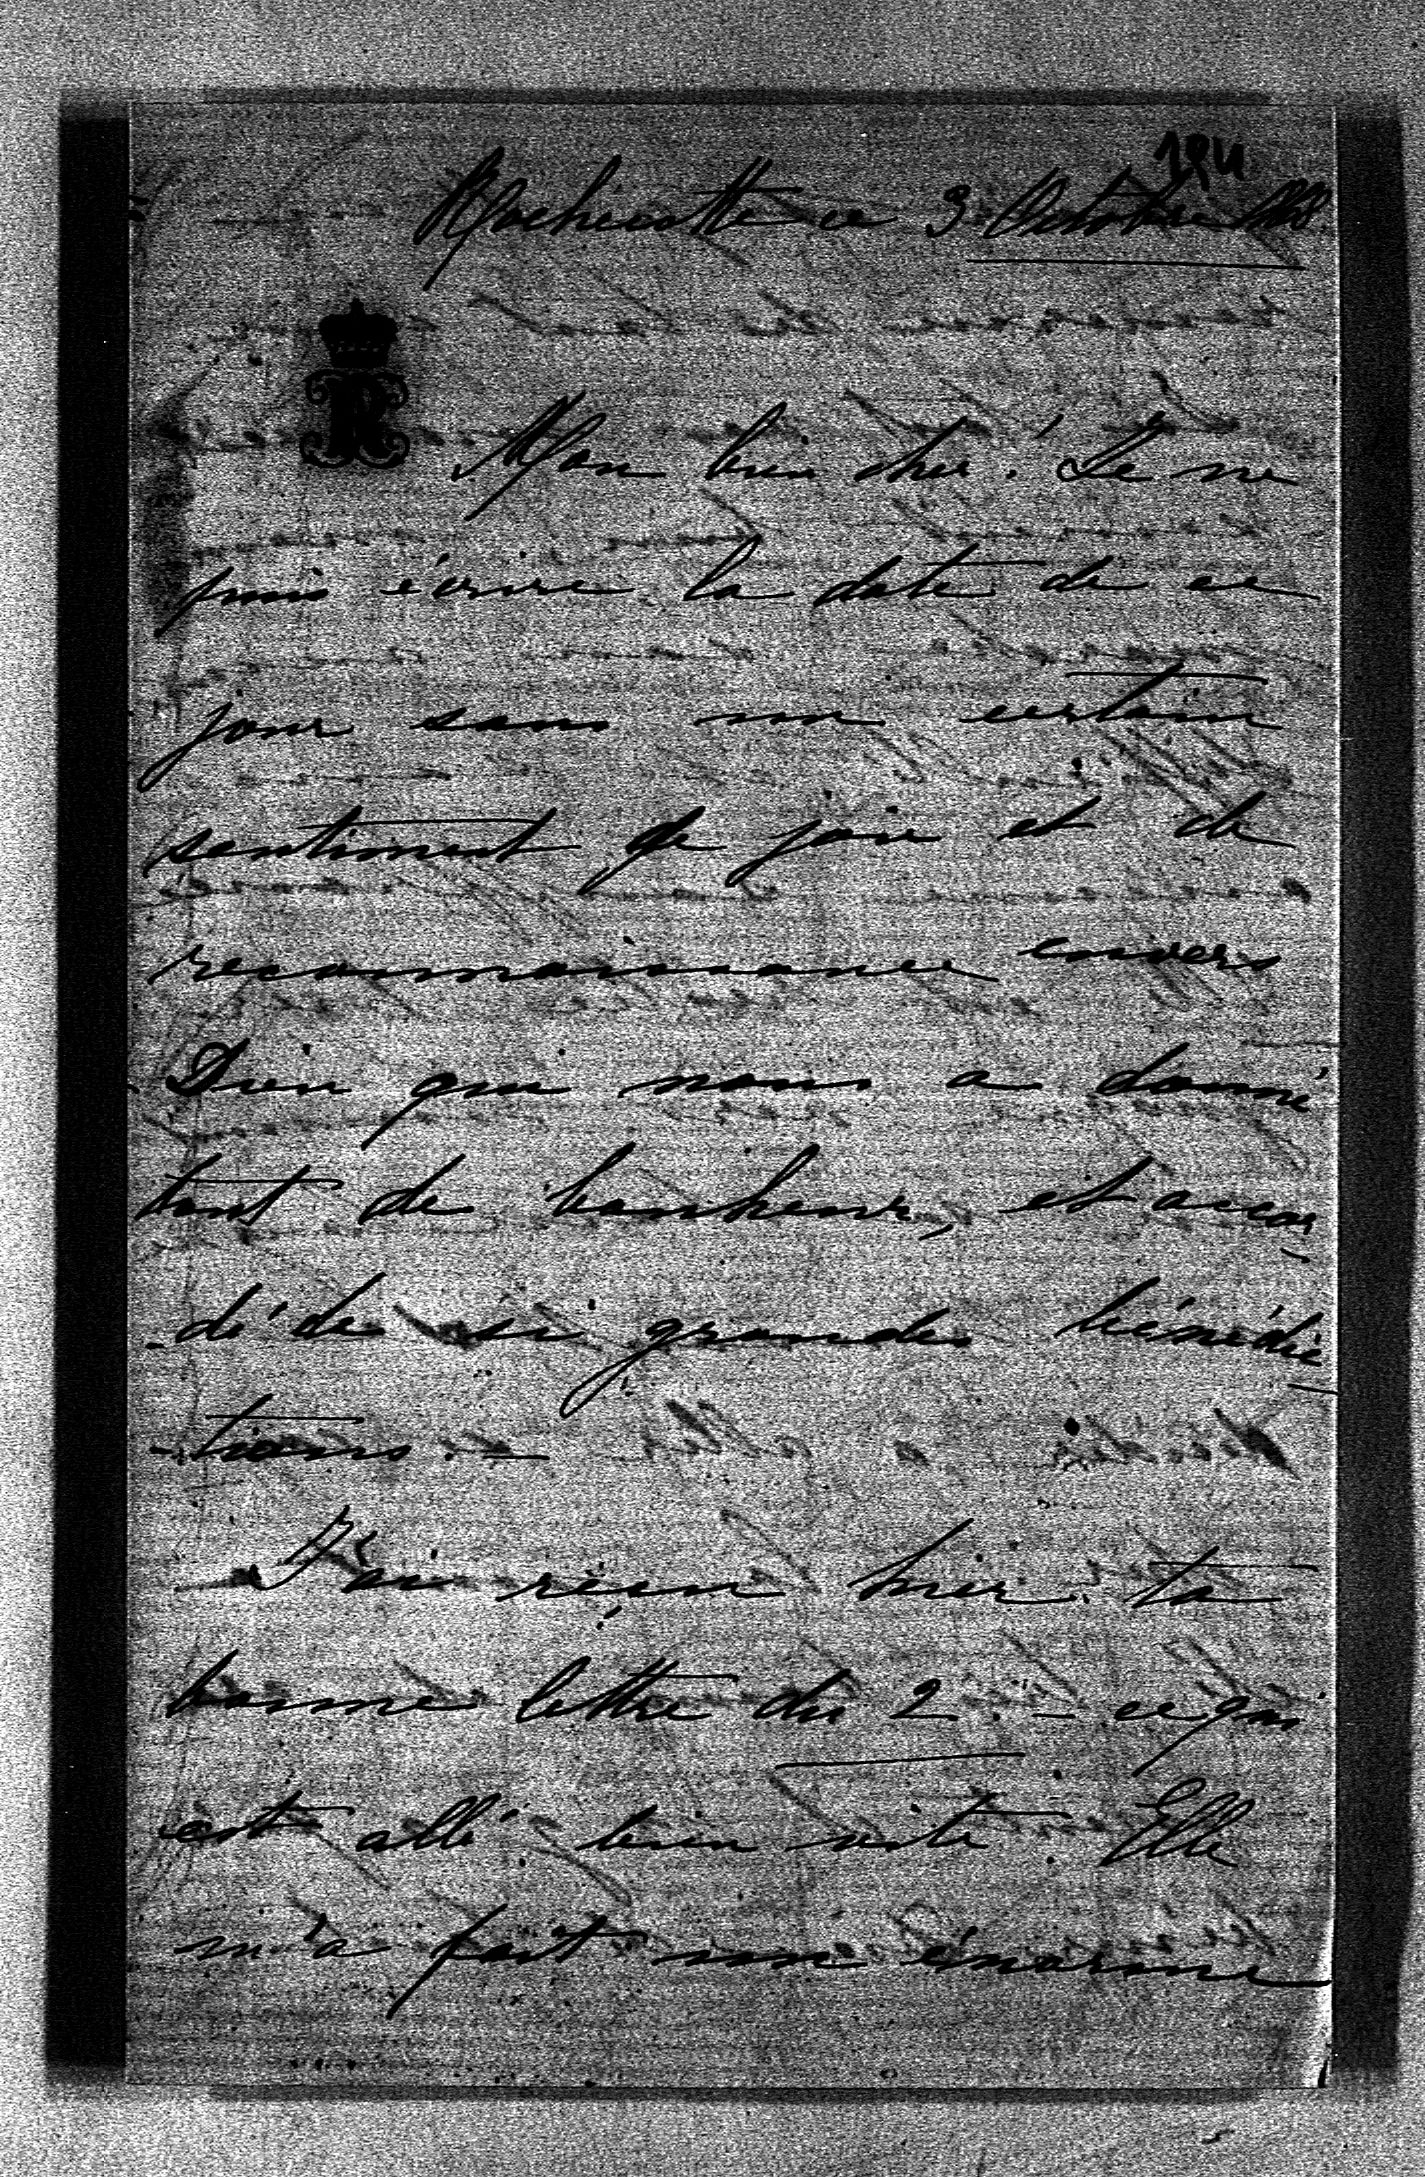 194
Rochecotte ce 3 Octobre
R
Mon bien cher! Je ne
puis écrire la date de ce
jour sans un certain
sentiment de joie et de
reconnaissance envers
Dieu qui nous a donné
tant de bonheur, et accor
-dé de si grandes bénédic
-tions. —
— J'ai reçu hier ta
bonne lettre du 2. — ce qui
est allé bien vite. Elle
m'a fait un énorme